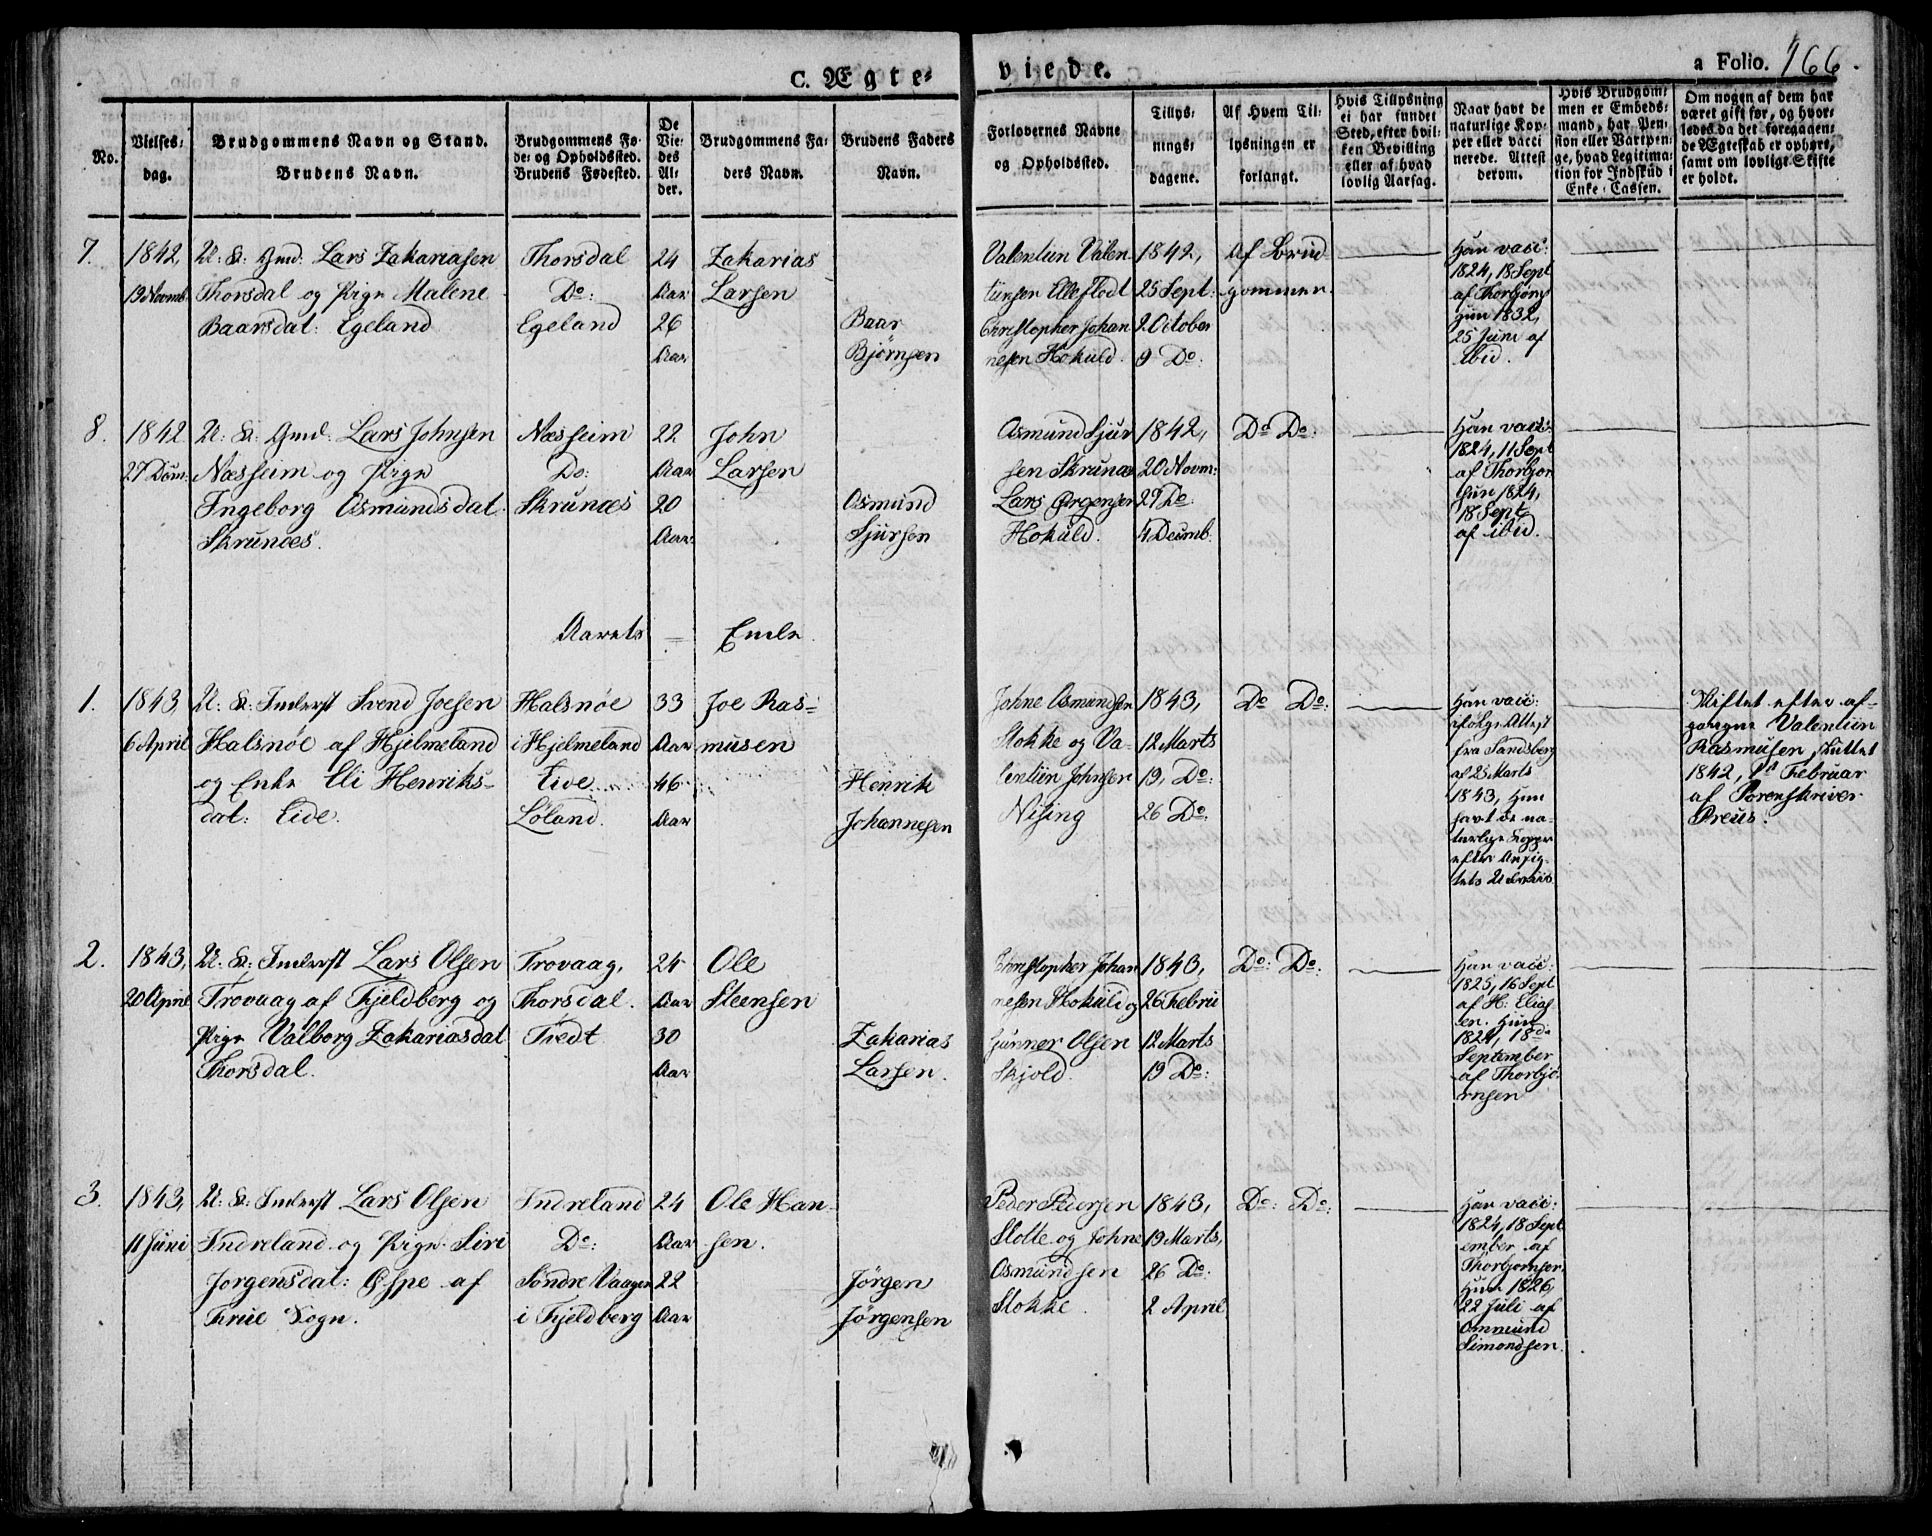 C. Ægte-
viede.
a Folio. 166.
No.
Vielses-
dag.
Brudgommens Navn og Stand.
Brudens Navn.
Brudgommens Fø-
de- og Opholdssted.
Brudens Fødested.
De
Vie-
des
Al-
der.
Brudgommens Fa-
ders Navn.
Brudens Faders
Navn.
Forlovernes Navne
og Opholdssted.
Tillys-
nings-
dagene.
Af Hvem Til-
lysningen er
forlangt.
Hvis Tillysning
ei har fundet
Sted, efter hvil-
ken Bevilling
eller af hvad
lovlig Aarsag.
Naar havt de
naturlige Kop-
per eller vacci
nerede. Attest
derom.
Hvis Brudgom-
men er Embeds-
mand, har Pen-
sion eller Vartpen-
ge, hvad Legitima-
tion for Indskud i
Enke-Cassen.
Om nogen af dem har
været gift før, og hvor-
ledes da det foregaaen-
de Ægteskab er ophørt,
samt om lovligt Skifte
er holdt.
7.
1842,
19 Novmb:
U: K: Gmd. Lars Zakariasen
Thorsdal og Pige Malene
Baarsdat: Egeland
Thorsdal
Do:
Egeland
24
Aar
26
Aar
Zakarias
Larsen
Baar
Bjørnsen
Valentiin Valen
tiinsen Elleflodt
Christopher Johan
nesen Hokuld.
1842,
25 Sept:
2 October
9 Do:
Af Brud
gommen
Han vacc:
1824, 18 Sept
af Thorbjørns
Hun 1832,
25 Juni af
ibid.
8.
1842
27 Decm:
U: K: Gmd. Lars Johnsen
Næsheim og Pige
Ingeborg Osmundsdat.
Skrunæs.
Næsheim
Do:
Skrunæs
22
Aar
20
Aar
John
Larsen
Osmund
Sjursen
Osmund Sjur
sen Skrunæs
Lars Ørgensen
Hokuld.
1842,
20 Novm:
27 Do
4 Decmb.
Do Do:
Han vacc:
1824, 11 Sept
af Thorbjør
Hun 1824,
18 Sept
af ibid.
Aarets - Ende.
1.
1843,
6 April
U: K: Inderst Svend Joesen
Halsnøe af Hjelmeland
og Enke Eli Henriks-
dat: Eide.
Halsnøe
i Hjelmeland
Eide
Løland.
33
Aar
46
Aar
Joe Ras-
musen
Henrik
Johannesen
Johne Osmundsen
Stokke og Va-
lentiin Johnsen
Nising
1843,
12 Marts
19, Do:
26 Do.
Do Do:
Han vacc:
ifølge Attest
fra Sandsberg
af 25 Marts
1843, Hun
havt de na-
turlige Kopper
efter Ansig-
tets Udviis
Skiftet efter af-
gangne Valentiin
Rasmusen sluttet
1842, 1st Februar
af Sorenskriver
Preus.
2.
1843,
20 April
U. K: Inderst Lars Olsen
Trovaag af Fjeldberg og
Pige Valborg Zakariasdat
Thorsdal.
Trovaag,
Thorsdal.
Tredt
24
Aar
30
Aar
Ole
Steensen
Zakarias
Larsen.
Christopher Johan
nesen Hokuld og
Gunner Olsen
Skjold.
1843,
26 Febru
12 Marts
19 Do:
Do: Do:
Han vacc:
1825, 16 Sept
af H: Elias
en. Hun
1824, 18de
September
af Thorbjø-
rnsen
3.
1843,
11 Juni
U: K: Inderst Lars Olsen
Indreland og Pige Siri
Jorgensdat: Espe af
Etnie Sogn.
Indreland
Do:
Søndre Vaagen
i Fjeldberg
24
Aar
22
Aar
Ole Han-
sen.
Jørgen
Jørgensen
Peder Pedersen
Slotte og Johne
Osmundsen
Stokke.
1843,
19 Marts,
26 Do:
2 April
Do: Do:
Han vacc:
1824, 18 Sept
ember af
Thorbjornsen
Hun 1826,
22 Juli af
Ommund
Simondsen.